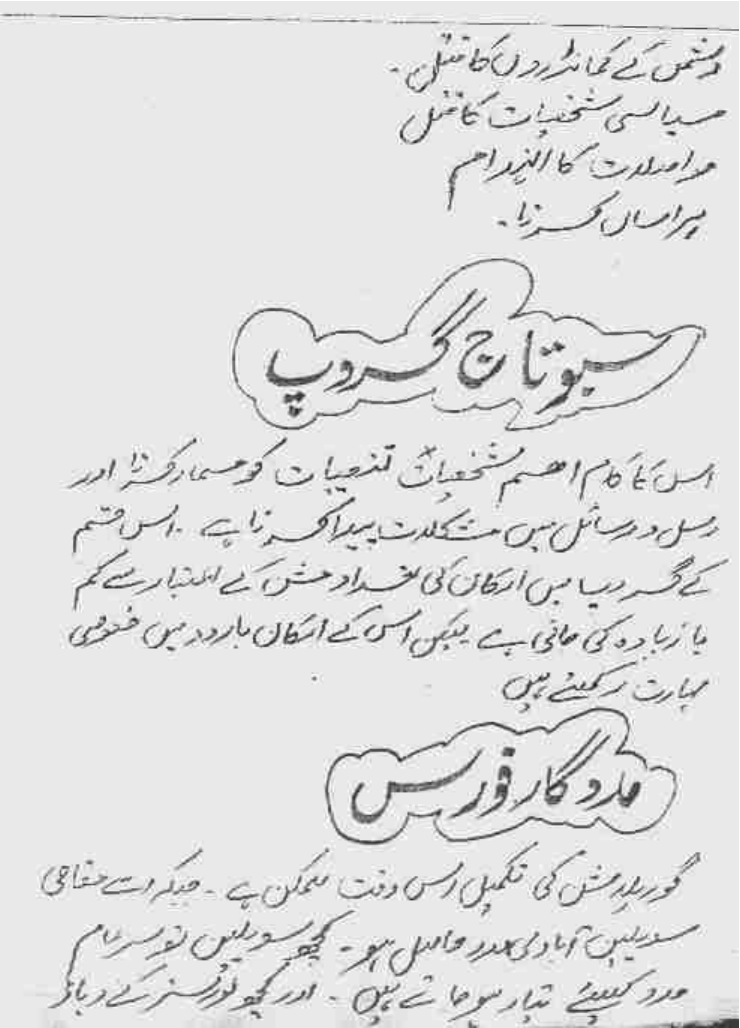 دشمن کے کمانڈروں کا قتل۔
سیاسی شخصیات کا قتل
مواصلات کا انہدام
ہراساں کرنا۔
سبوتاج گروپ
اس کا کام اہم شخصیات تنصیبات کو مسمار کرنا اور
رسل و رسائل میں مشکلات پیدا کرنا ہے ۔ اس قسم
کے گروپ میں ارکان کی تعداد مشن کے اعتبار سے کم
یا زیادہ کی جاتی ہے لیکن اس کے ارکان بارود میں خصوصی
مہارت رکھتے ہیں
مددگار فورس
گوریلا مشن کی تکمیل اس وقت ممکن ہے ۔ جبکہ اسے مقامی
سویلین آبادی مدد حاصل ہو ۔ کچھ سویلین تو سرعام
مدد کیلئے تیار ہو جاتے ہیں ۔ اور کچھ فورسز کے دباؤ